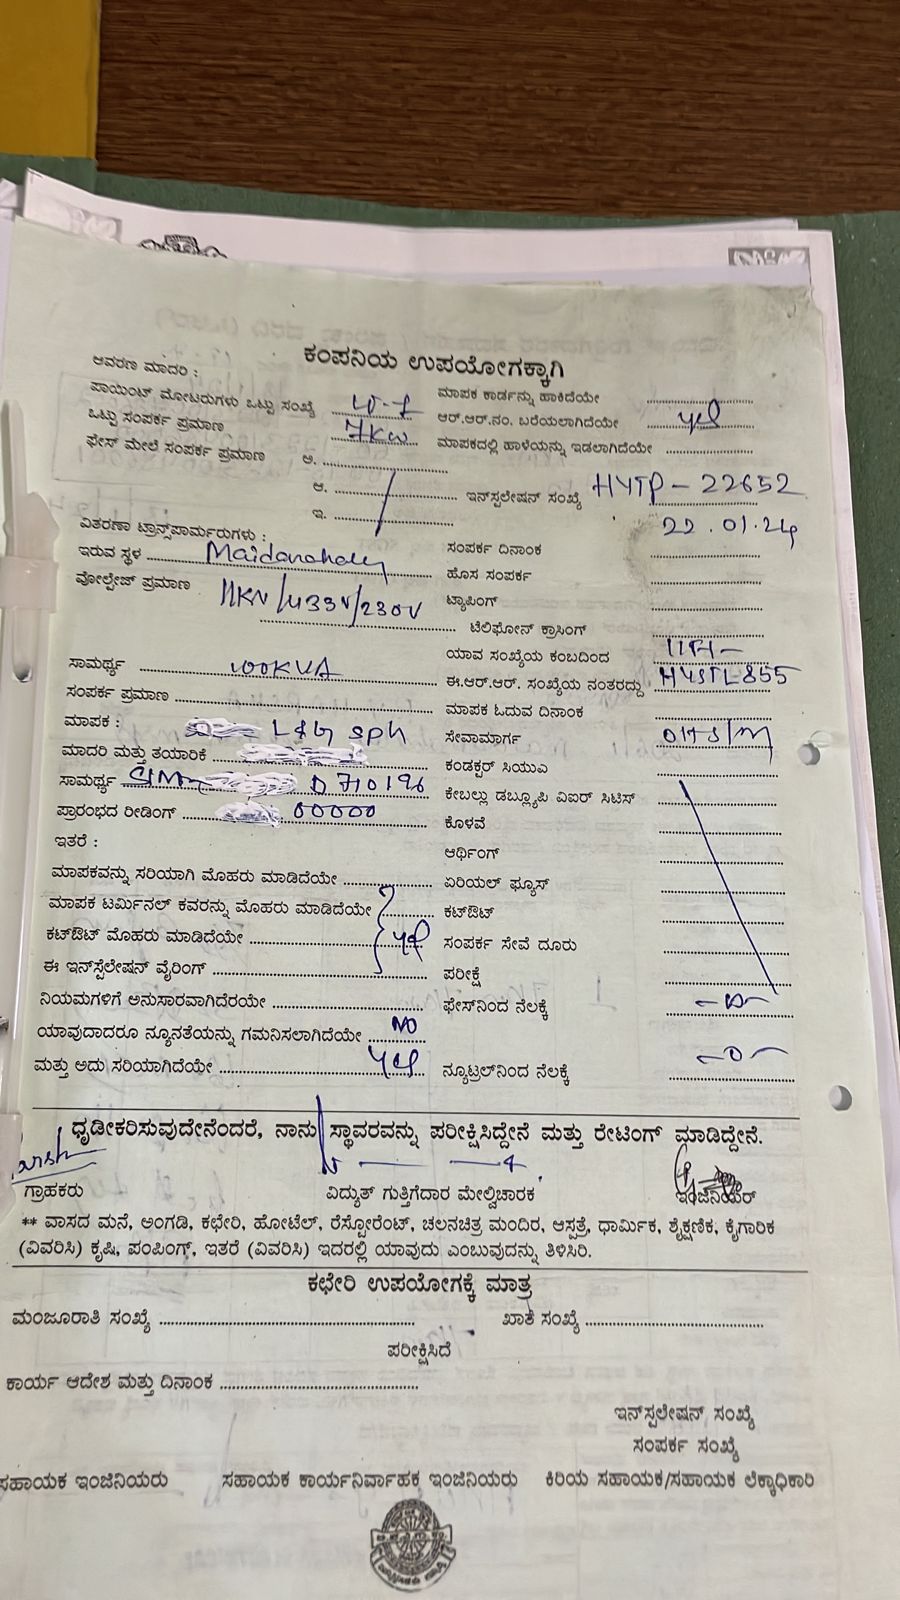 ಕಂಪನಿಯ ಉಪಯೋಗಕ್ಕಾಗಿ
ಆವರಣ ಮಾದರಿ :
ಪಾಯಿಂಟ್ ಮೋಟರುಗಳು ಒಟ್ಟು ಸಂಖ್ಯೆ ಮಾಪಕ ಕಾರ್ಡನ್ನು ಹಾಕಿದೆಯೇ
ಒಟ್ಟು ಸಂಪರ್ಕ ಪ್ರಮಾಣ 7KW ಆರ್.ಆರ್.ನಂ. ಬರೆಯಲಾಗಿದೆಯೇ yes
ಫೇಸ್ ಮೇಲೆ ಸಂಪರ್ಕ ಪ್ರಮಾಣ ಅ. ಮಾಪಕದಲ್ಲಿ ಹಾಳೆಯನ್ನು ಇಡಲಾಗಿದೆಯೇ
ಆ. ಇನ್‌ಸ್ಟಲೇಷನ್ ಸಂಖ್ಯೆ HYTP - 22652
ಇ. 22.01.24
ವಿತರಣಾ ಟ್ರಾನ್ಸ್‌ಪಾರ್ಮರುಗಳು :
ಇರುವ ಸ್ಥಳ ಸಂಪರ್ಕ ದಿನಾಂಕ
ವೋಲ್ಟೇಜ್ ಪ್ರಮಾಣ 11KV/433V/230V ಹೊಸ ಸಂಪರ್ಕ
ಟ್ಯಾಪಿಂಗ್
ಟೆಲಿಫೋನ್ ಕ್ರಾಸಿಂಗ್
ಯಾವ ಸಂಖ್ಯೆಯ ಕಂಬದಿಂದ
ಸಾಮರ್ಥ್ಯ 100KVA ಈ.ಆರ್.ಆರ್. ಸಂಖ್ಯೆಯ ನಂತರದ್ದು HYSTL855
ಸಂಪರ್ಕ ಪ್ರಮಾಣ ಮಾಪಕ ಓದುವ ದಿನಾಂಕ
ಮಾಪಕ : L&G sph ಸೇವಾಮಾರ್ಗ
ಮಾದರಿ ಮತ್ತು ತಯಾರಿಕೆ ಕಂಡಕ್ಟರ್ ಸಿಯುವಿ
ಸಾಮರ್ಥ್ಯ ಕೇಬಲ್ಲು ಡಬ್ಲ್ಯೂಪಿ ವಿಐರ್ ಸಿಟಿಸ್
ಪ್ರಾರಂಭದ ರೀಡಿಂಗ್ 00000 ಕೊಳವೆ
ಇತರೆ : ಆರ್ಥಿಂಗ್
ಮಾಪಕವನ್ನು ಸರಿಯಾಗಿ ಮೊಹರು ಮಾಡಿದೆಯೇ ಏರಿಯಲ್ ಫ್ಯೂಸ್
ಮಾಪಕ ಟರ್ಮಿನಲ್ ಕವರನ್ನು ಮೊಹರು ಮಾಡಿದೆಯೇ ಕಟ್‌ಔಟ್
ಕಟ್‌ಔಟ್ ಮೊಹರು ಮಾಡಿದೆಯೇ yes ಸಂಪರ್ಕ ಸೇವೆ ದೂರು
ಈ ಇನ್‌ಸ್ಟೆಲೇಷನ್ ವೈರಿಂಗ್ ಪರೀಕ್ಷೆ
ನಿಯಮಗಳಿಗೆ ಅನುಸಾರವಾಗಿದೆರಯೇ ಫೇಸ್‌ನಿಂದ ನೆಲಕ್ಕೆ
ಯಾವುದಾದರೂ ನ್ಯೂನತೆಯನ್ನು ಗಮನಿಸಲಾಗಿದೆಯೇ NO
ಮತ್ತು ಅದು ಸರಿಯಾಗಿದೆಯೇ Yes ನ್ಯೂಟ್ರಲ್‌ನಿಂದ ನೆಲಕ್ಕೆ -0-
ಧೃಡೀಕರಿಸುವುದೇನೆಂದರೆ, ನಾನು ಸ್ಥಾವರವನ್ನು ಪರೀಕ್ಷಿಸಿದ್ದೇನೆ ಮತ್ತು ರೇಟಿಂಗ್ ಮಾಡಿದ್ದೇನೆ.
ಗ್ರಾಹಕರು ವಿದ್ಯುತ್ ಗುತ್ತಿಗೆದಾರ ಮೇಲ್ವಿಚಾರಕ ಇಂಜಿನಿಯರ್
** ವಾಸದ ಮನೆ, ಅಂಗಡಿ, ಕಛೇರಿ, ಹೋಟೆಲ್, ರೆಸ್ಟೋರೆಂಟ್, ಚಲನಚಿತ್ರ ಮಂದಿರ, ಆಸ್ಪತ್ರೆ, ಧಾರ್ಮಿಕ, ಶೈಕ್ಷಣಿಕ, ಕೈಗಾರಿಕ
(ವಿವರಿಸಿ) ಕೃಷಿ, ಪಂಪಿಂಗ್, ಇತರೆ (ವಿವರಿಸಿ) ಇದರಲ್ಲಿ ಯಾವುದು ಎಂಬುವುದನ್ನು ತಿಳಿಸಿರಿ.
ಕಛೇರಿ ಉಪಯೋಗಕ್ಕೆ ಮಾತ್ರ
ಮಂಜೂರಾತಿ ಸಂಖ್ಯೆ ಖಾತೆ ಸಂಖ್ಯೆ
ಪರೀಕ್ಷಿಸಿದೆ
ಕಾರ್ಯ ಆದೇಶ ಮತ್ತು ದಿನಾಂಕ
ಇನ್‌ಸ್ಟಲೇಷನ್ ಸಂಖ್ಯೆ
ಸಂಪರ್ಕ ಸಂಖ್ಯೆ
ಸಹಾಯಕ ಇಂಜಿನಿಯರು ಸಹಾಯಕ ಕಾರ್ಯನಿರ್ವಾಹಕ ಇಂಜಿನಿಯರು ಕಿರಿಯ ಸಹಾಯಕ/ಸಹಾಯಕ ಲೆಕ್ಕಾಧಿಕಾರಿ